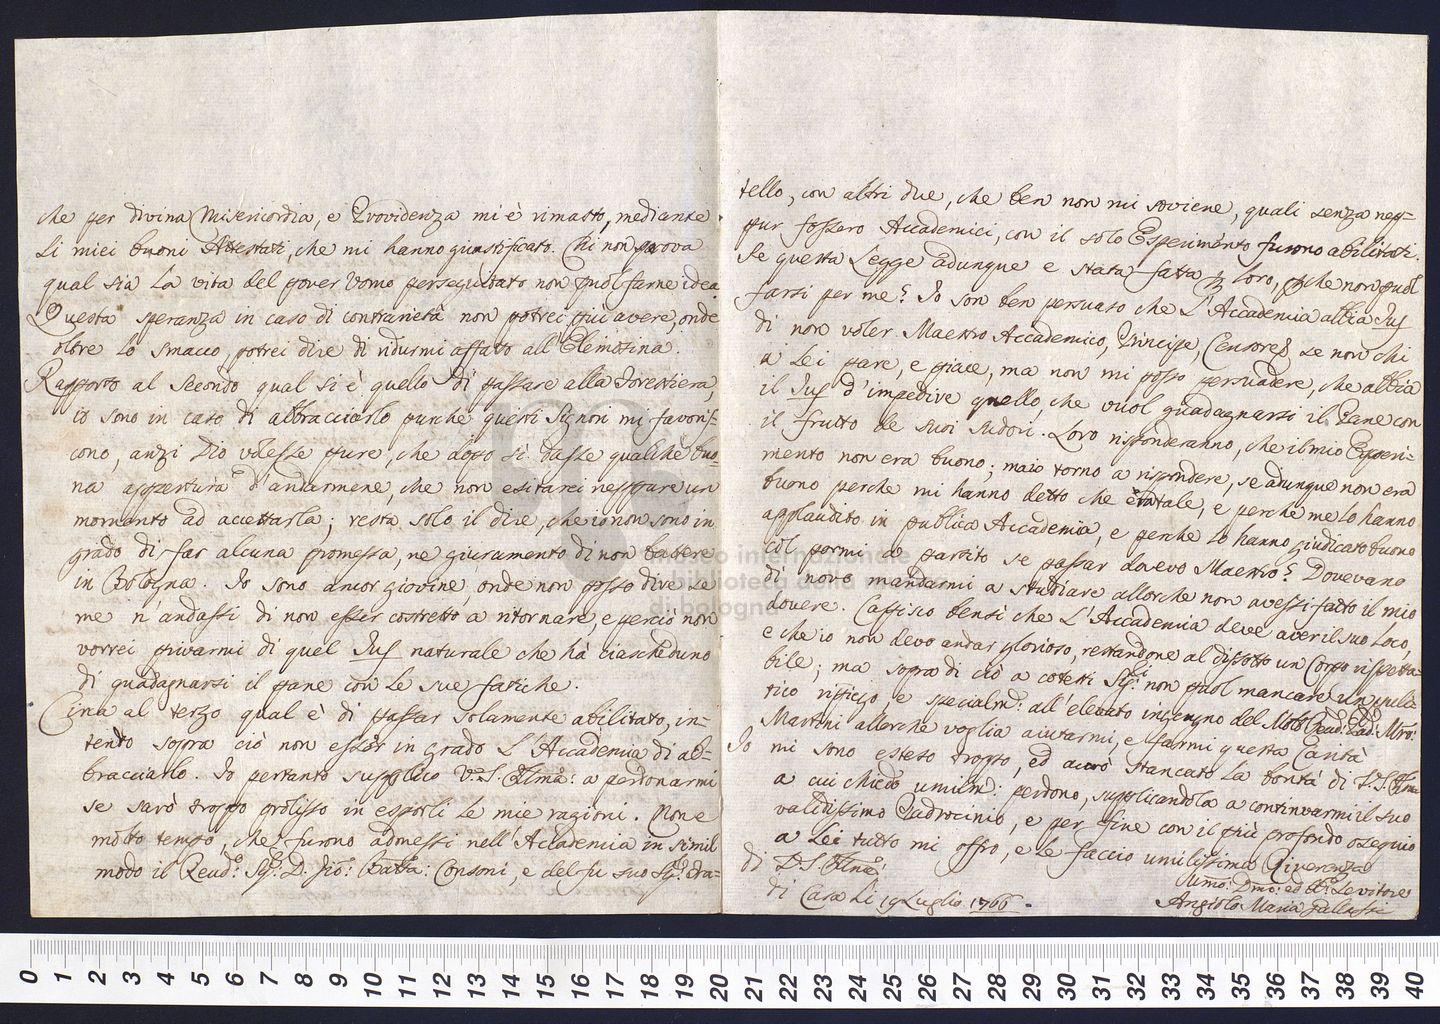 che per divina Misericordia, e Providenza mi è rimasto, mediante
li miei buoni Attestati, che mi hanno giustificato. Chi non prova
qual sia la vita del pover Uomo perseguitato non puol farne idea.
Questa speranza in caso di contrarietà non potrei più avere, onde
oltre lo smacco, potrei dire di ridurmi affato all'Elemosina.
Rapporto al secondo qual si è quello di passare alla Forestiera,
io sono in caso di abbracciarlo purche questi Signori mi favoris=
cono, anzi Dio volesse pure, che dopo si dasse qualche buo=
na appertura d'andarmene, che non esitarei neppure un
momento ad accettarla; resta solo il dire, che io non sono in
grado di far alcuna promessa, ne giuramento di non battere
in Bologna. Io sono ancor giovine, onde non posso dire se
me n'andassi di non esser costretto a ritornare, e perciò non
vorrei privarmi di quel Jus naturale che hà ciascheduno
di guadagnarsi il pane con le sue fatiche.
Circa al terzo qual è di passar solamente abilitato, in=
tendo sopra ciò non esser in grado l'Accademia di ab=
bracciarlo. Io pertanto supplico V.S. Illma: a perdonarmi
se sarò troppo prolisso in esporli le mie ragioni. Non è
molto tempo, che furono admessi nell'Accademia in simil
modo il Reud: Sig: D. Gio: Batta: Consoni, e del fu suo Sig: Fra=
tello, con altri due, che ben non mi soviene, quali senza nep=
pur fossero Accademici, con il solo Esperimento furono abilitati.
Se questa Legge adunque e stata fatta per loro, perche non puol
farsi per me? Io son ben persuaso che l'Accademia abbia Jus
di non voler Maestro Accademico, Principe, Censore se non chi
a Lei pare, e piace, ma non mi posso persuadere, che abbia
il Jus d'impedire quello, che vuol guadagnarsi il Pane con
il frutto de suoi sudori. Loro risponderanno, che il mio Esperi=
mento non era buono; ma io torno a rispondere, se adunque non era
buono perche mi hanno detto che era tale, e perche me lo hanno
applaudito in publica Accademia, e perche lo hanno giudicato buono
col pormi a partito se passar dovevo Maestro? Dovevano
di novo mandarmi a studiare allorche non avessi fatto il mio
dovere. Capisco bensì che l'Accademia deve aver il suo loco,
e che io non devo andar glorioso, restandone al dissotto un Corpo rispetta=
bile; ma sopra di ciò a cotesti Sigri non puol mancare un pulli=
tico ripiego, e specialm: all'elevato ingegno del Molto Reud: Pad: Mro:
Martini allorchè voglia aiutarmi, e farmi questa Carità
Io mi sono esteso troppo, ed avrò stancato la bontà di V.S. Illma
a cui chiedo umilm: perdono, supplicandola a continuarmi il suo
validissimo Padrocinio, e per fine con il più profondo ossequio
a Lei tutto mi offro, e le faccio umilissima Riverenza
di V.S. Illma
di Casa li 19 Luglio 1766.
Ummo: Dmo: ed Servitore
Angiolo Maria
museo internazionale
e biblioteca della
di bologna
0 1 2 3 4 5 6 7 8 9 10 11 12 13 14 15 16 17 18 19 20 21 22 23 24 25 26 27 28 29 30 31 32 33 34 35 36 37 38 39 40